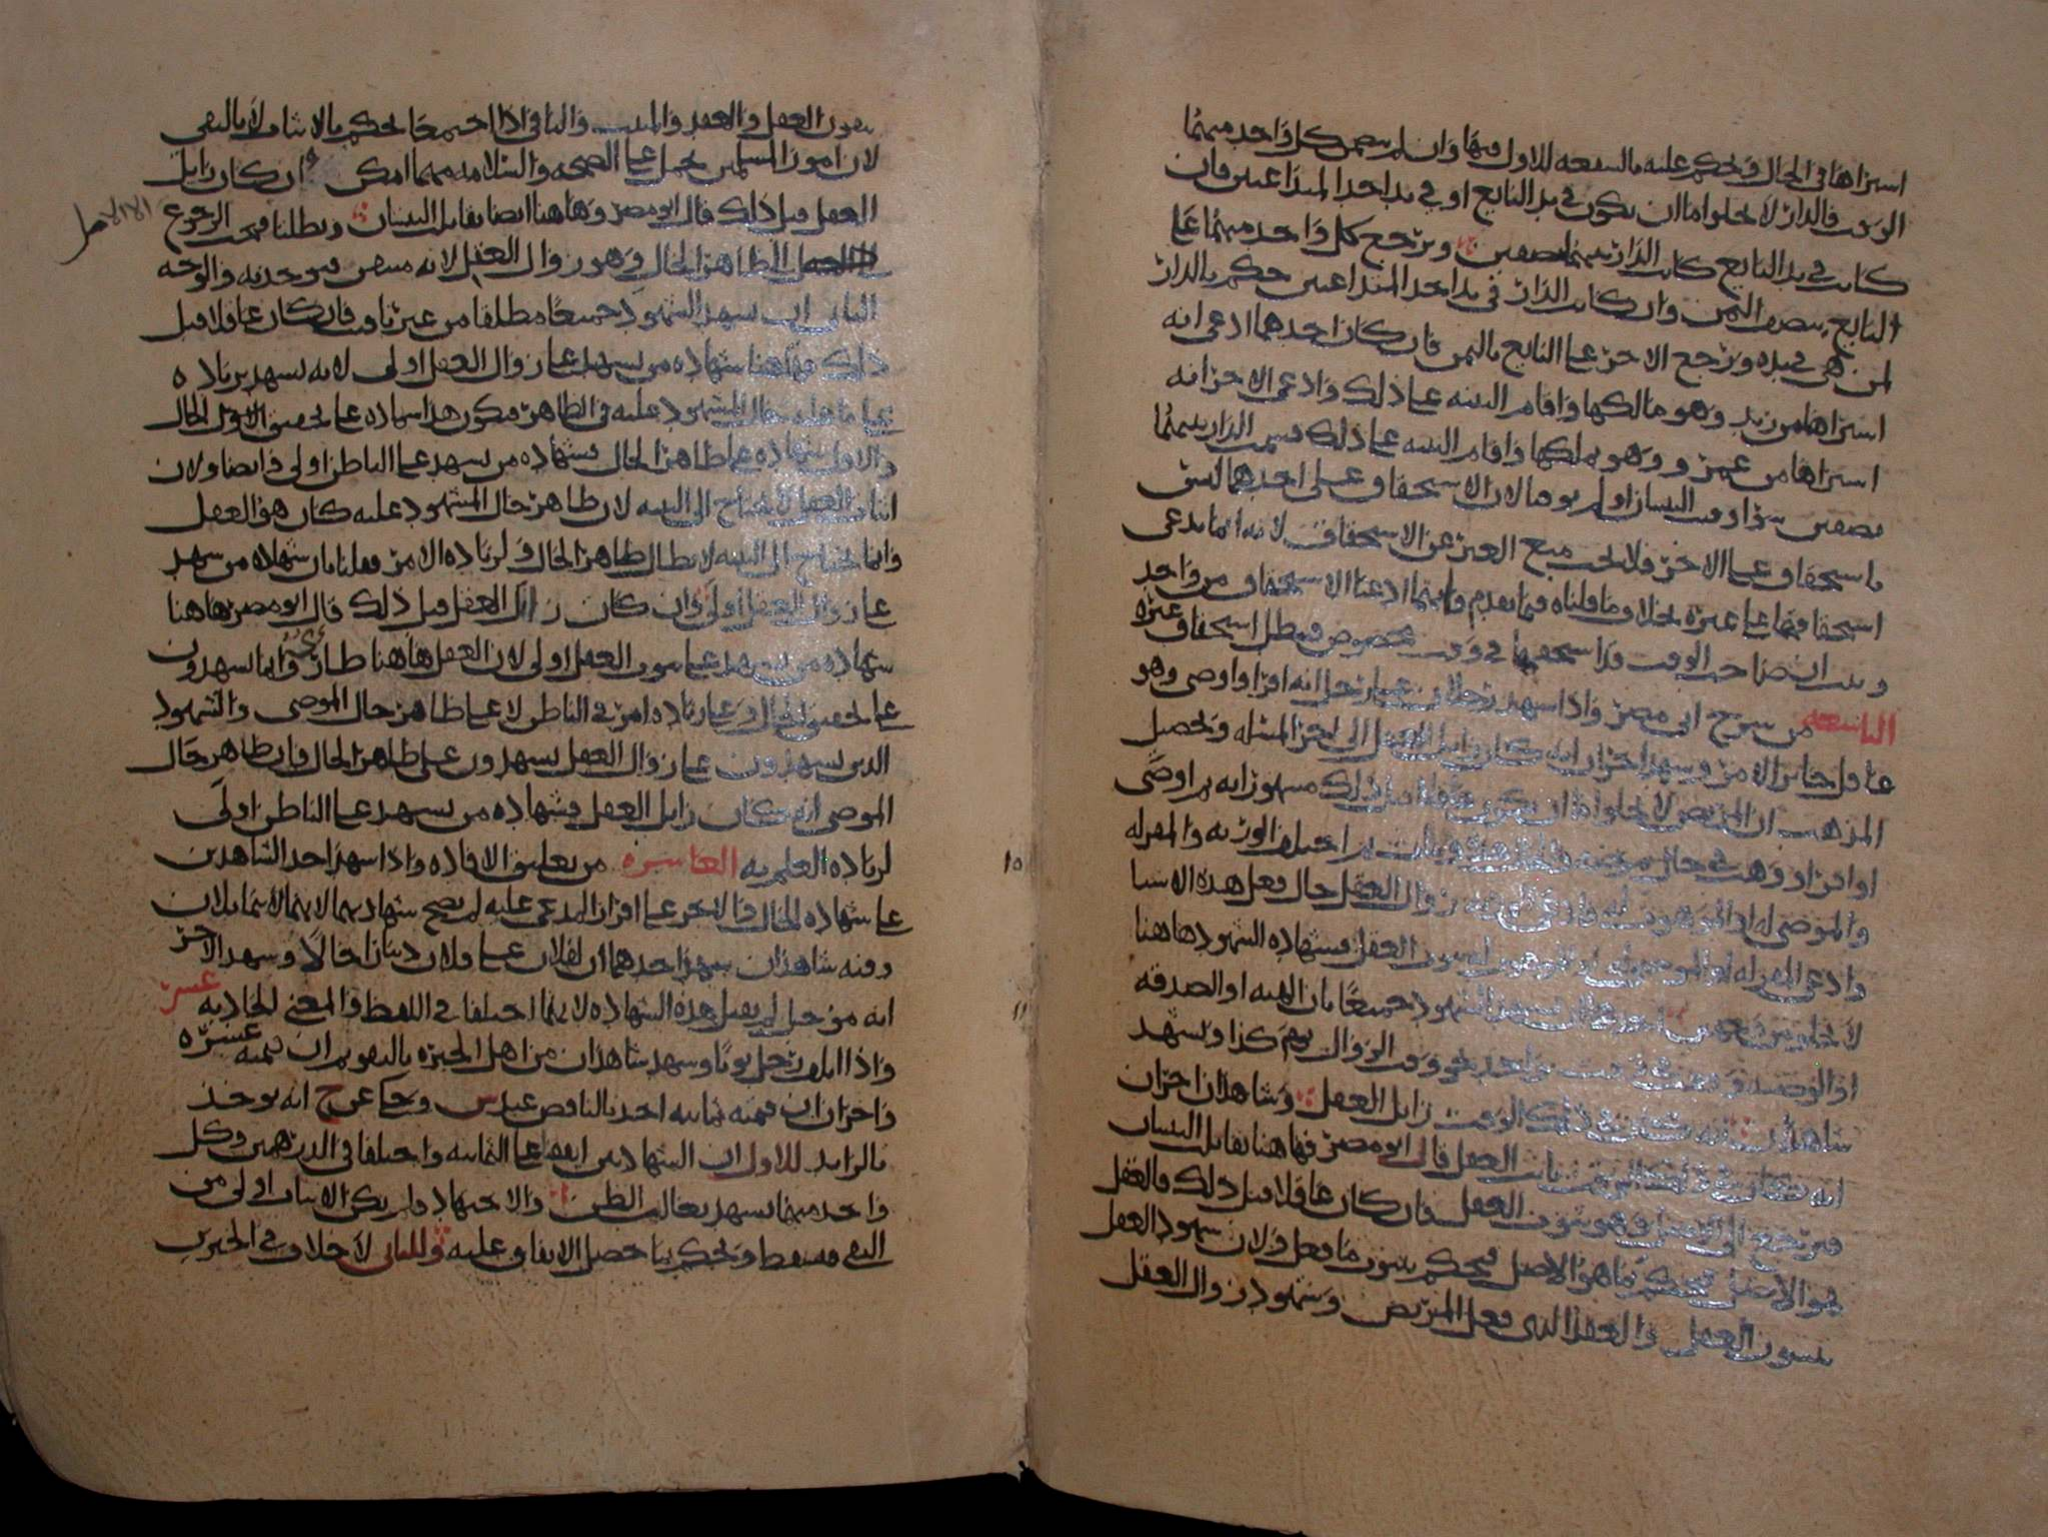 اشتراها في الحال ويحكم عليه بالشفعة للاول فيها وان لم يبين كل واحد منهما
الوقت فالدار لا يخلوا اما ان يكون في يد البايع او في يد احد المتداعيين فان
كانت في يد البايع كانت الدار بينهما نصفين ويرجع كل واحد منهما على
البايع بنصف الثمن وان كانت الدار في يد احد المتداعيين حكم بالدار
لمن هي في يده ويرجع الاخر على البايع بالثمن فان كان احدهما ادعى انه
اشتراها من زيد وهو مالكها واقام البينه على ذلك وادعى الاخر انه
اشتراها من عمرو وهو يملكها واقام البينه على ذلك قسمت الدار بينهما
نصفين سوا وقت البينتان او لم يوقتا لان الاستحقاق على احدهما ليس
باستحقاق على الاخر فلا يجب منع الغير عن الاستحقاق لانه انما يدعي
استحقاقها على غيره بخلاف ما قلناه فيما تقدم فانهما ادعيا الاستحقاق من واحد
وثبت ان صاحب الوقت قد استحقها في وقت مخصوص فبطل استحقاق غيره
التاسعه من شرح ابي مضر واذا شهد رجلان على رجل انه اقر او اوصى وهو
عاقل جايز الامر وشهد اخران انه كان زايل العقل الى اخر المسئله وتحصيل
المذهب ان المريض لا يخلوا اما ان يكون عاقلا قبل ذلك مشهورا به ثم اوصى
او اقر او وهب في حال مرضه ومات ثم اختلف الورثه والمقر له
والموصى له او الموهوب له فادعى الورثه زوال العقل حال فعل هذه الاشيا
وادعى المقر له او الموصى له او الموهوب له ثبوت العقل فشهادة الشهود هاهنا
لا تخلو من وجهين احدهما ان يشهد الشهود جميعا بان الهبه او الصدقه
او الوصيه وقعت في وقت واحد نحو وقت الزوال يوم كذا ويشهد
شاهدان انه كان في ذلك الوقت زايل العقل وشاهدان اخران
انه كان في ذلك الوقت ثابت العقل قال ابو مضر فهاهنا تقابل البينتان
فيرجع الى الاصل وهو ثبوت العقل فان كان عاقلا قبل ذلك فالعقل
هو الاصل فيحكم بما هو الاصل فيحكم بثبوت ما فعل ولان شهود العقل
يثبتون العقل والعقد الذي فعل المريض وشهود زوال العقل
ينفون العقل والعقد والمثبت والنافي اذا اجتمعا يحكم بالاثبات لا بالنفي
لان امور المسلمين تحمل على الصحه والسلامه مهما امكن وان كان زايل
العقل قبل ذلك قال ابو مضر وهاهنا ايضا تقابل البينتان وبطلتا فيجب الرجوع
الى الاصل
الى الظاهر الحال وهو زوال العقل لانه متيقن فيوخذ به والوجه
الثاني ان يشهد الشهود جميعا مطلقا من غير تاقيت فان كان عاقلا قبل
ذلك فهاهنا شهاده من يشهد على زوال العقل اولى لانه يشهد بزياده
على ما عليه حال المشهود عليه في الظاهر فيكون هذا شهاده على تحقيق الحال
والاول شهاده على ظاهر الحال فشهاده من يشهد على الباطن اولى وايضا ولان
اثبات العقل لا يحتاج الى البينه لان ظاهر حال المشهود عليه كان هو العقل
وانما يحتاج الى البينه لابطال ظاهر الحال ولزياده الامر فقلنا بان شهاده من شهد
على زوال العقل اولى وان كان زايل العقل قبل ذلك قال ابو مضر هاهنا
شهاده من يشهد على ثبوت العقل اولى لان العقل هاهنا طار وانما يشهدون
على تحقيق الحال وعلى زياده امر في الباطن لا على ظاهر حال الموصي والشهود
الذين يشهدون على زوال العقل يشهدون على ظاهر الحال فان ظاهر حال
الموصي انه كان زايل العقل فشهاده من يشهد على الباطن اولى
لزياده العلم به العاشره من تعاليق الافاده واذا شهد احد الشاهدين
على شهاده الحال والاخر على اقرار المدعى عليه لم يصح شهادتهما لانهما لا يتماثلان
وفيه شاهدان يشهد احدهما ان لفلان على فلان دينارا حالا وشهد الاخر
انه مؤجل لم يقبل هذه الشهاده لانهما اختلفا في اللفظ والمعنى الحاديه عشر
واذا اتلف رجل ثوبا وشهد شاهدان من اهل الخبره بالتقويم ان قيمته عشره
واخران ان قيمته ثمانيه اخذ بالناقص عندس وحكي عن ح انه يوخذ
بالزايد للاول ان الشهادتين اتفقتا على الثمانيه واختلفا في الدرهمين وكل
واحد منهما يشهد بغالب الظن والاجتهاد ولم يكن الاثبات اولى من
النفي فسقط ويحكم بما حصل الاتفاق عليه وللثاني لا خلاف في الخبرين